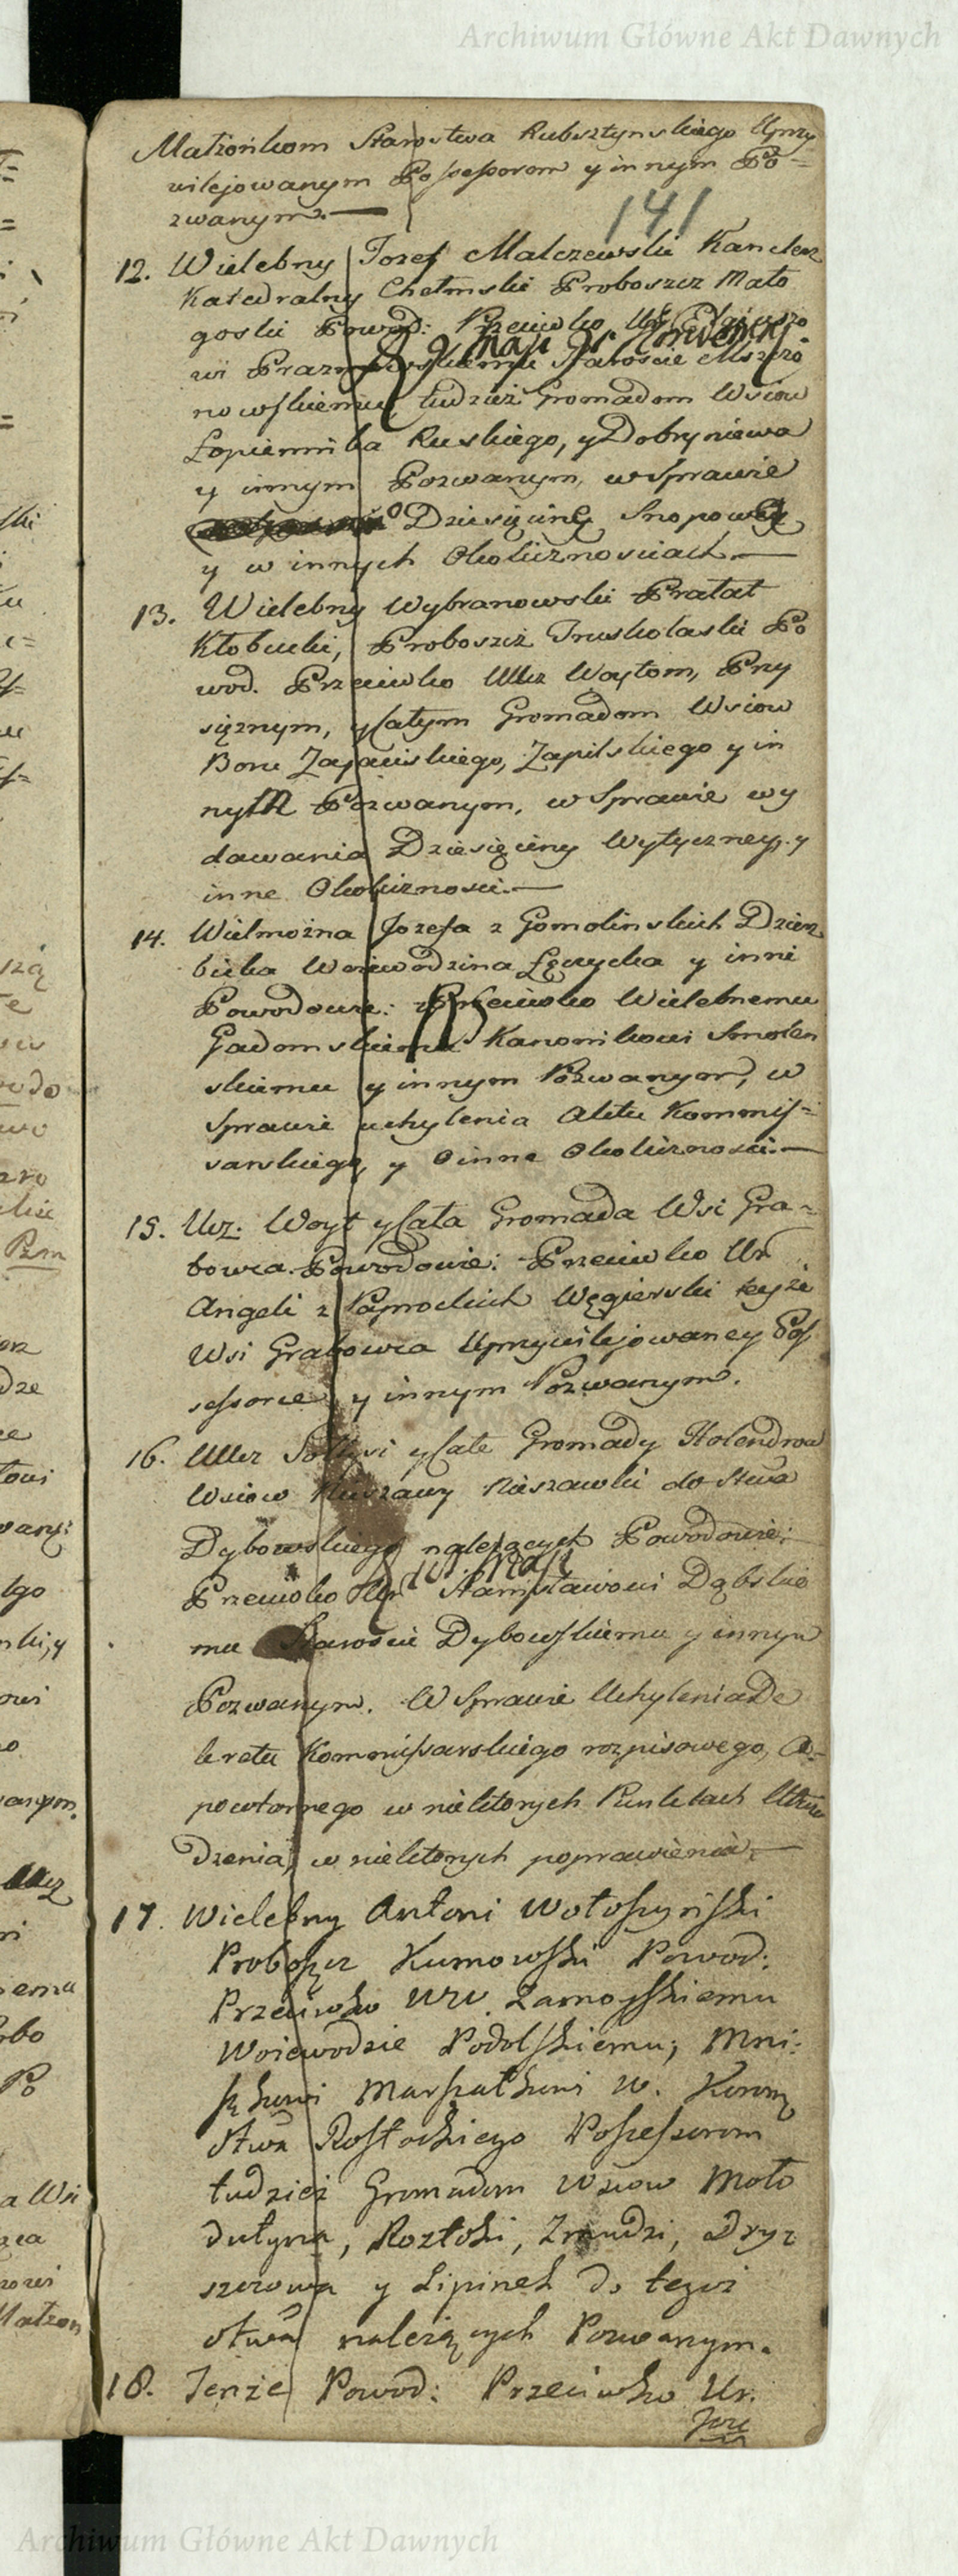 Archiwum Główne Akt Dawnych
Małżonkom Starostwa Rabsztynskiego Uprzy
wilejowanym Possessorom y innym Po=
zwanym.—
141
12. Wielebny Jozef Malczewski Kanclerz
Katedralny Chełmski Proboszcz Mało
goski Powod: Przeciwko Ur Eligiuszo
wi Prazmowskiemu Staroscie Mszczo
nowskiemu, tudzież Gromadom Wsiow
Łopiennika Ruskiego, y Dobryniewa
y innym Pozwanym, w Sprawie
o Dziesięcinę Snopową
y w innych Okolicznosciach.—
13. Wielebny Wybranowski Prałat
Kłobucki, Proboszcz Truskolaski Po
wod. Przeciwko UUcz Woytom, Przy
sięznym, y całym Gromadom Wsiow
Boru Zajacinskiego, Zapilskiego y in
nym Pozwanym, w Sprawie wy
dawania Dziesięciny Wytyczney, y
inne Okolicznosci.—
14. Wielmożna Jozefa z Gomolinskich Dzierz
bicka Woiewodzina Łęczycka y inni
Powodowie: Przeciwko Wielebnemu
Gadomskiemu Kanonikowi Smolen
skiemu y innym Pozwanym, w
Sprawie uchylenia Aktu Kommis=
sarskiego, y o inne Okolicznosci.—
15. Ucz. Woyt y cała Gromada Wsi Gra=
bowca. Powodowie: Przeciwko Ur
Angeli z Paprockich Węgierski teyże
Wsi Grabowca Uprzywilejowaney Pos
sessorce y innym Pozwanym.
16. UUcz Soltysi y całe Gromady Holendrow
Wsiow Nieszawki do Stwa
Dybowskiego należących Powodowie:
Przeciwko Ur Stanisławowi Dąbskie
mu Staroscie Dybowskiemu y innym
Pozwanym. W Sprawie Uchylenia De
kretu Kommissarskiego rozpisowego, a
powtornego w niektorych Punktach Utwier
dzenia, w niektorych poprawienia.—
17. Wielebny Antoni Wołoszyński
Proboszcz Kumowski Powod:
Przeciwko WW. Zamoyskiemu
Woiewodzie Podolskiemu; Mni:
szkowi Marszałkowi W. Koron
Stwa Rostockiego Possessorom
tudzież Gromadom Wsiow Moło
dutyna, Roztoki, Zmudzi, Dryz
szczowa y Lipinek do tegoż
Stwa należących Pozwanym.
18. Tenże Powod: Przeciwko Ur.
Joze
Archiwum Główne Akt Dawnych